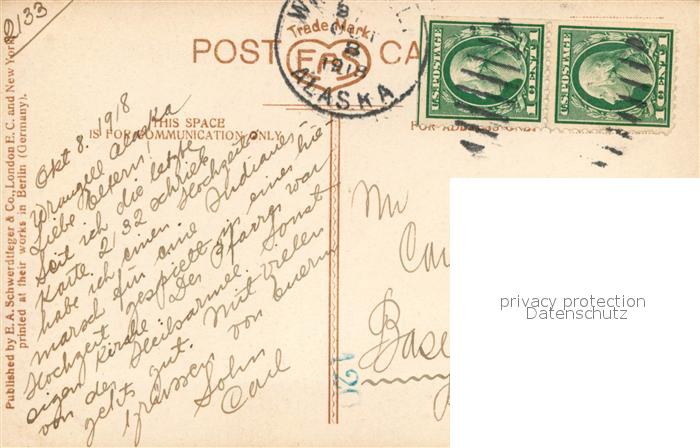 2133
Published by E. A. Schwerdtfeger & Co., London E. C. and New York
printed at their works in Berlin (Germany).
POST CA
Trade Mark
EAS
W
8
1918
ALASKA
U.S. POSTAGE
1 CENT 1
U.S. POSTAGE
1 CENT 1
THIS SPACE
IS FOR COMMUNICATION ONLY.
FOR ADDRESS ONLY
Okt 8. 1918
Wrangell Alaska
Liebe Eltern!
Seit ich die letzte
Karte 232 schrieb
habe ich einen Hochzeits-
marsch für eine Indianes-
Hochzeit gespielt in eines hie-
sigen Kirche. Des Pfarres war
von des Heilsarmee. Sonst
gehts gut. Mit vielen
grüssen von Eurem
Sohn
Carl
Mr
Car
Base
privacy protection
Datenschutz